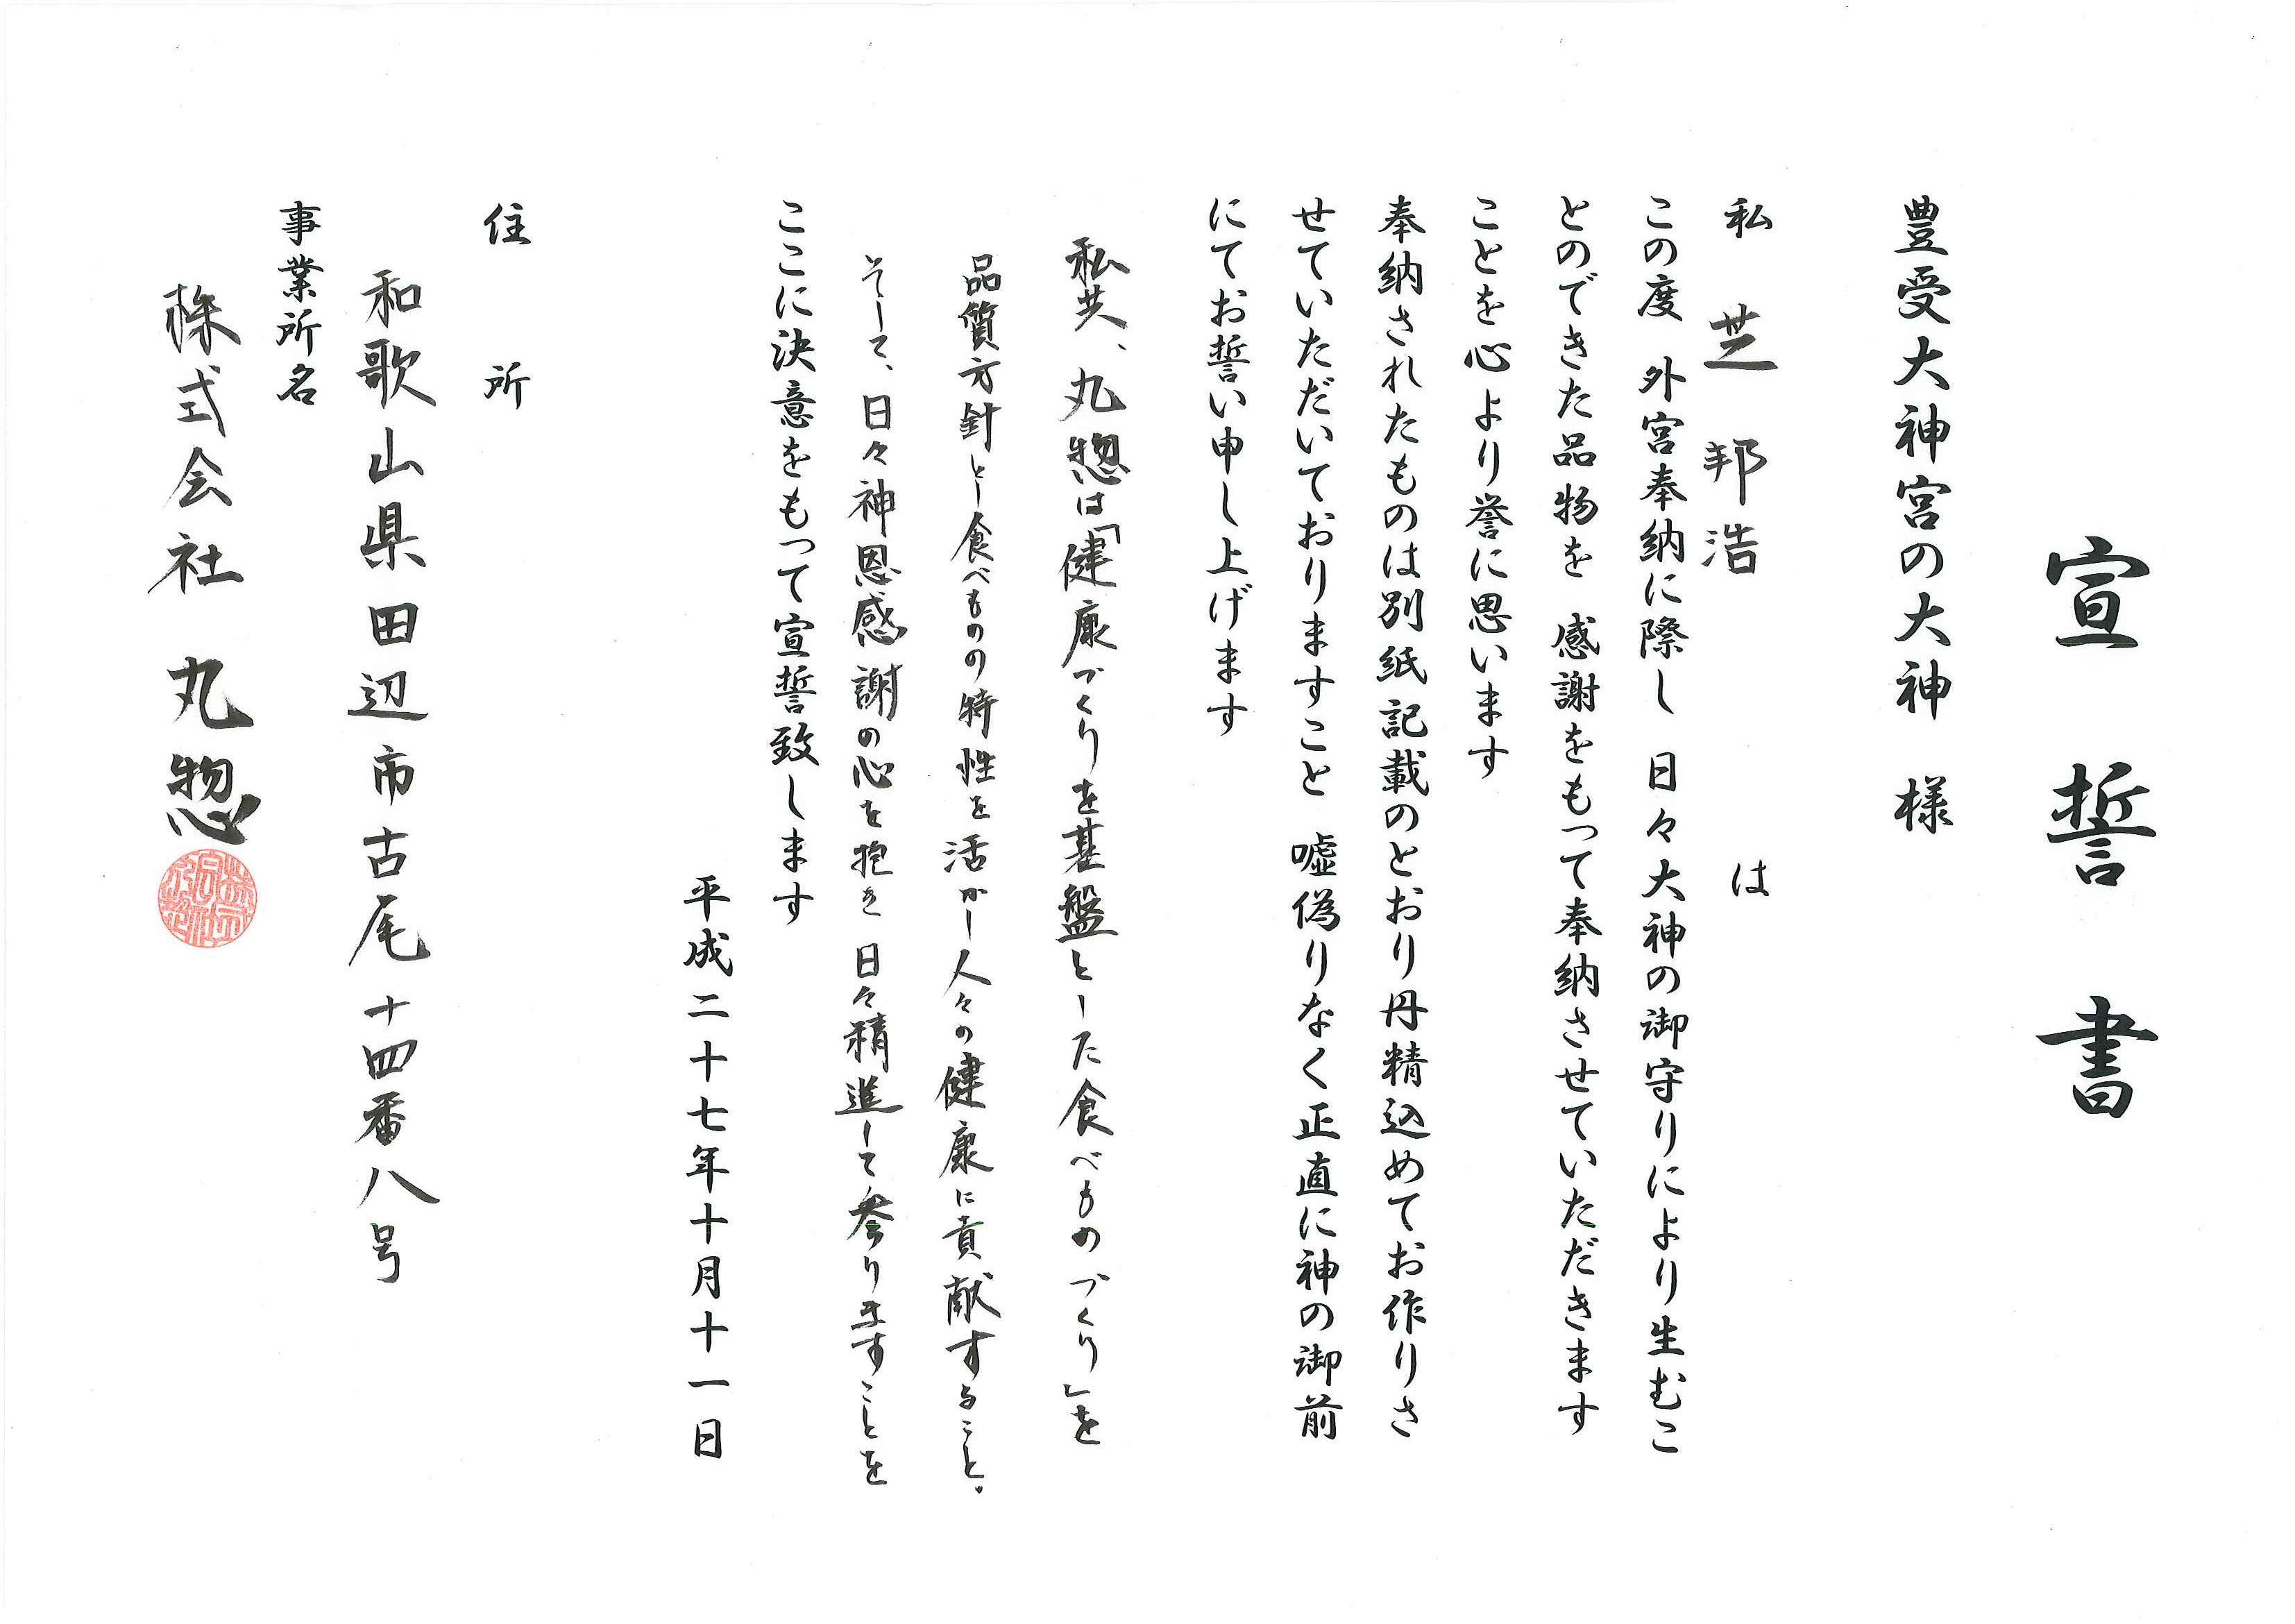 宣誓書
豊受大神宮の大神 様
私 芝 邦浩 は
この度 外宮奉納に際し 日々大神の御守りにより生むこ
とのできた品物を 感謝をもって奉納させていただきます
ことを心より誉に思います
奉納されたものは別紙記載のとおり丹精込めてお作りさ
せていただいておりますこと 嘘偽りなく正直に神の御前
にてお誓い申し上げます
私共、丸惣は「健康づくりを基盤とした食べものづくり」を
品質方針とし食べものの特性を活かし人々の健康に貢献すること。
そして、日々神恩感謝の心を抱き日々精進して参りますことを
ここに決意をもって宣誓致します
平成二十七年十月十一日
住所
和歌山県田辺市古尾十四番八号
事業所名
株式会社 丸惣